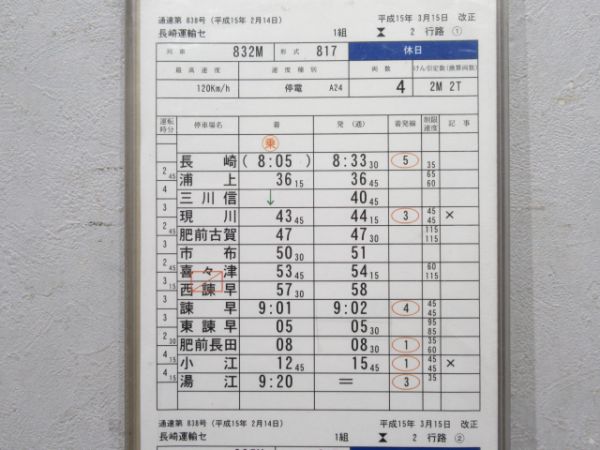 通達第 838号 (平成15年 2月14日) 平成15年 3月15日 改正
長崎運輸セ 1組 2 行路 ①
列車 832M 形式 817 休日
最高速度 速度種別 両数 けん引定数(換算両数)
120Km/h 停電 A24 4 2M 2T
運転時分 停車場名 着 発(通) 着発線 制限速度 記事
乗
長崎 ( 8:05 ) 8:33 30 5 35
2 45 浦上 36 15 36 45 65 60
3 三川信 ↓ 40 45
3 現川 43 45 44 15 3 45 45 ×
2 45 肥前古賀 47 47 30 115 115
3 市布 50 30 51
2 45 喜々津 53 45 54 15 60 115
3 15 西諫早 57 30 58
3 諫早 9:01 9:02 4 45 45
3 東諫早 05 05 30 95 85
2 30 肥前長田 08 08 30 1 35 60
4 15 小江 12 45 15 45 1 45 45 ×
4 15 湯江 9:20 = 3 35
通達第 838号 (平成15年 2月14日) 平成15年 3月15日 改正
長崎運輸セ 1組 2 行路 ②